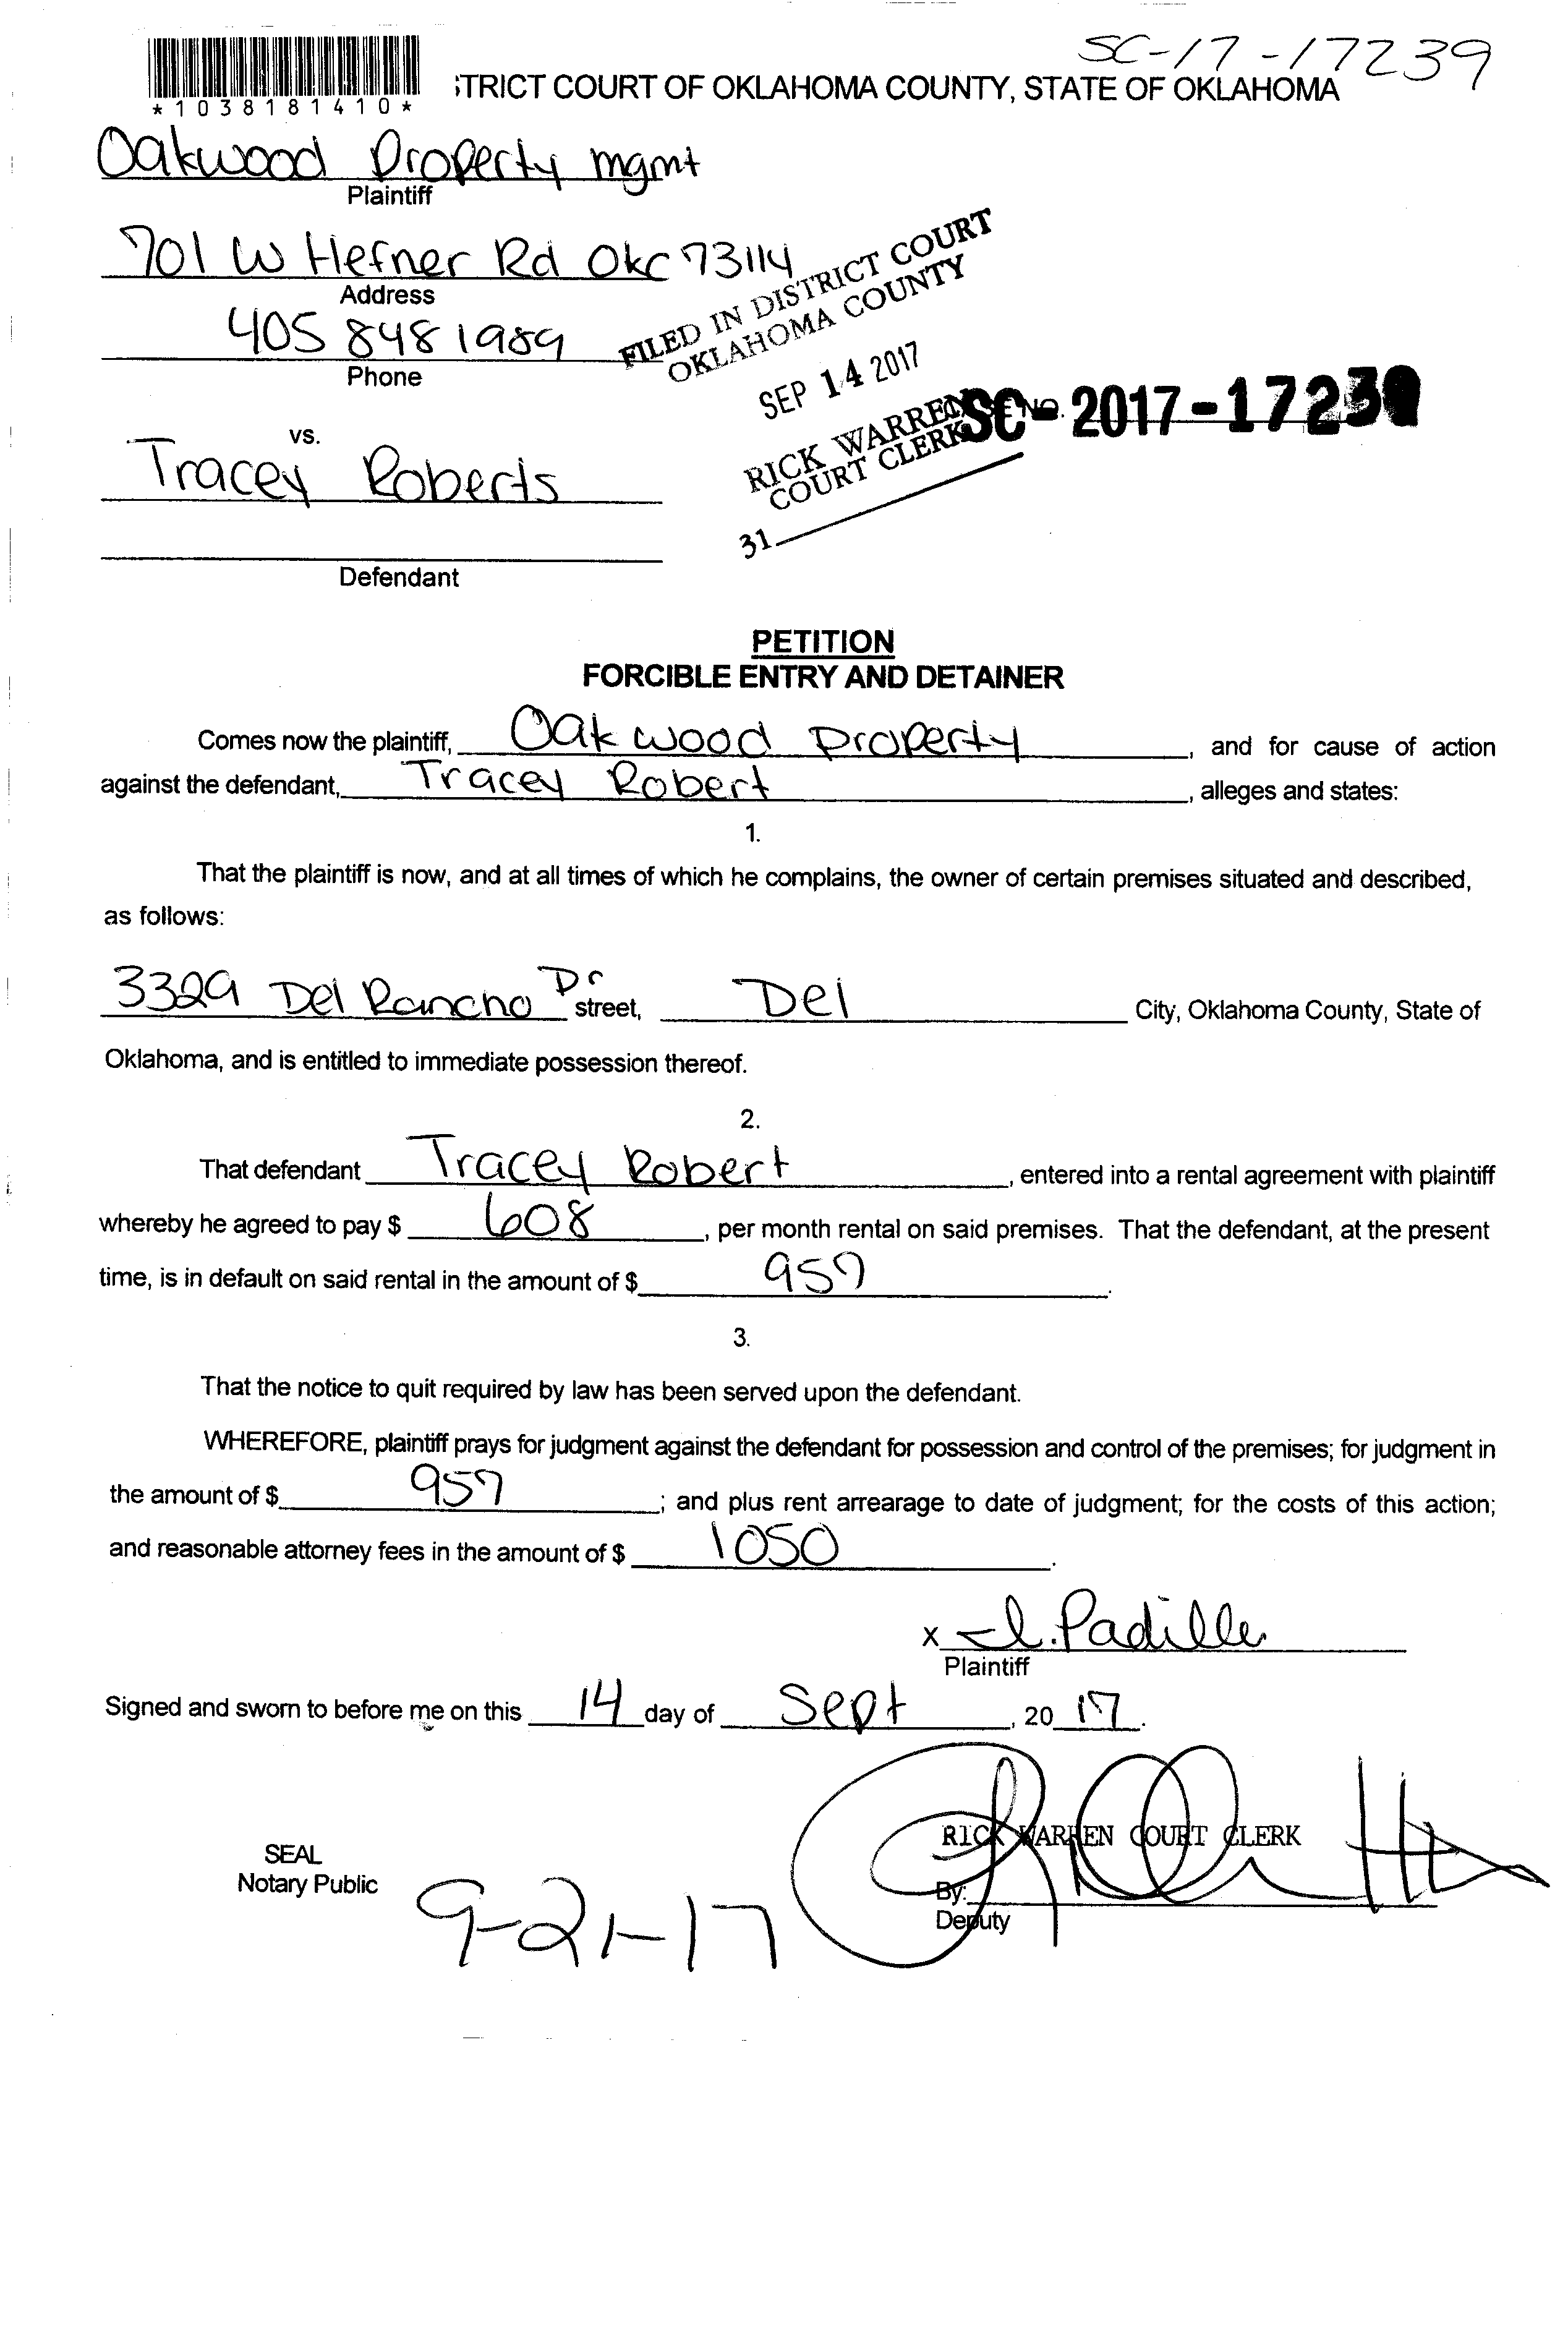 SC-17-17239
*1038181410*
TRICT COURT OF OKLAHOMA COUNTY, STATE OF OKLAHOMA
Oakwood Property mgmt
Plaintiff
701 W Hefner Rd Okc 73114
Address
405 848 1989
Phone
FILED IN DISTRICT COURT
OKLAHOMA COUNTY
SEP 14 2017
RICK WARREN
COURT CLERK
31
NO. SC-2017-17239
vs.
Tracey Roberts
Defendant
PETITION
FORCIBLE ENTRY AND DETAINER
Comes now the plaintiff, Oakwood Property, and for cause of action
against the defendant, Tracey Robert, alleges and states:
1.
That the plaintiff is now, and at all times of which he complains, the owner of certain premises situated and described,
as follows:
3329 Del Rancho Dr street, Del City, Oklahoma County, State of
Oklahoma, and is entitled to immediate possession thereof.
2.
That defendant Tracey Robert, entered into a rental agreement with plaintiff
whereby he agreed to pay $ 608, per month rental on said premises. That the defendant, at the present
time, is in default on said rental in the amount of $ 957.
3.
That the notice to quit required by law has been served upon the defendant.
WHEREFORE, plaintiff prays for judgment against the defendant for possession and control of the premises; for judgment in
the amount of $ 957; and plus rent arrearage to date of judgment; for the costs of this action;
and reasonable attorney fees in the amount of $ 1050.
x I. Padilla
Plaintiff
Signed and sworn to before me on this 14 day of Sept, 2017.
RICK WARREN COURT CLERK
SEAL
Notary Public
9-21-17
By:
Deputy